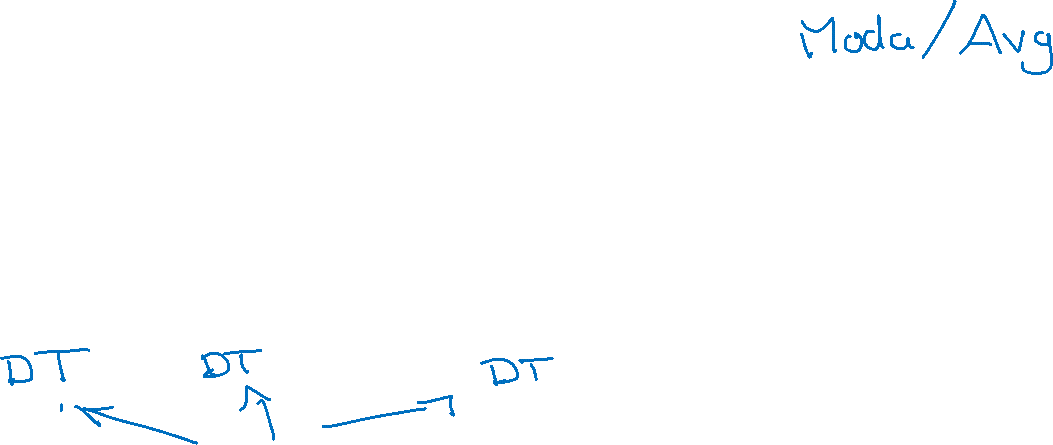 Moda/Avg
DT DT DT